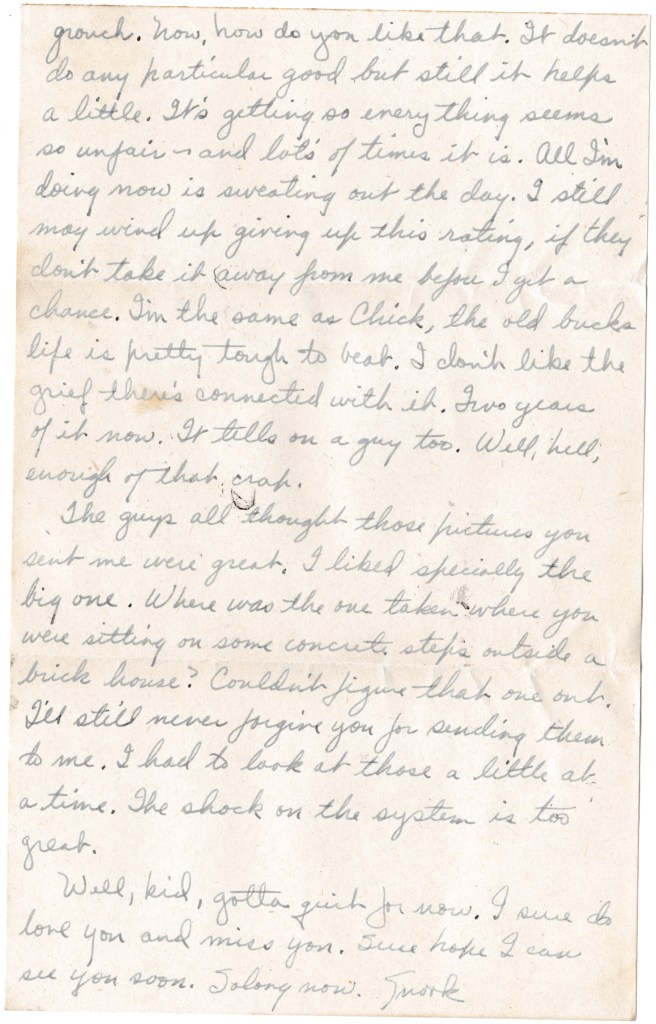 grouch. Now, how do you like that. It doesn't
do any particular good but still it helps
a little. It's getting so everything seems
so unfair - and lot's of times it is. All I'm
doing now is sweating out the day. I still
may wind up giving up this rating, if they
don't take it away from me before I get a
chance. I'm the same as Chick, the old bucks
life is pretty tough to beat. I don't like the
grief there's connected with it. Two years
of it now. It tells on a guy too. Well, hell,
enough of that crap.
The guys all thought those pictures you
sent me were great. I liked specially the
big one. Where was the one taken where you
were sitting on some concrete steps outside a
brick house? Couldn't figure that one out.
I'll still never forgive you for sending them
to me. I had to look at those a little at
a time. The shock on the system is too
great.
Well, kid, gotta quit for now. I sure do
love you and miss you. Sure hope I can
see you soon. Solong now.